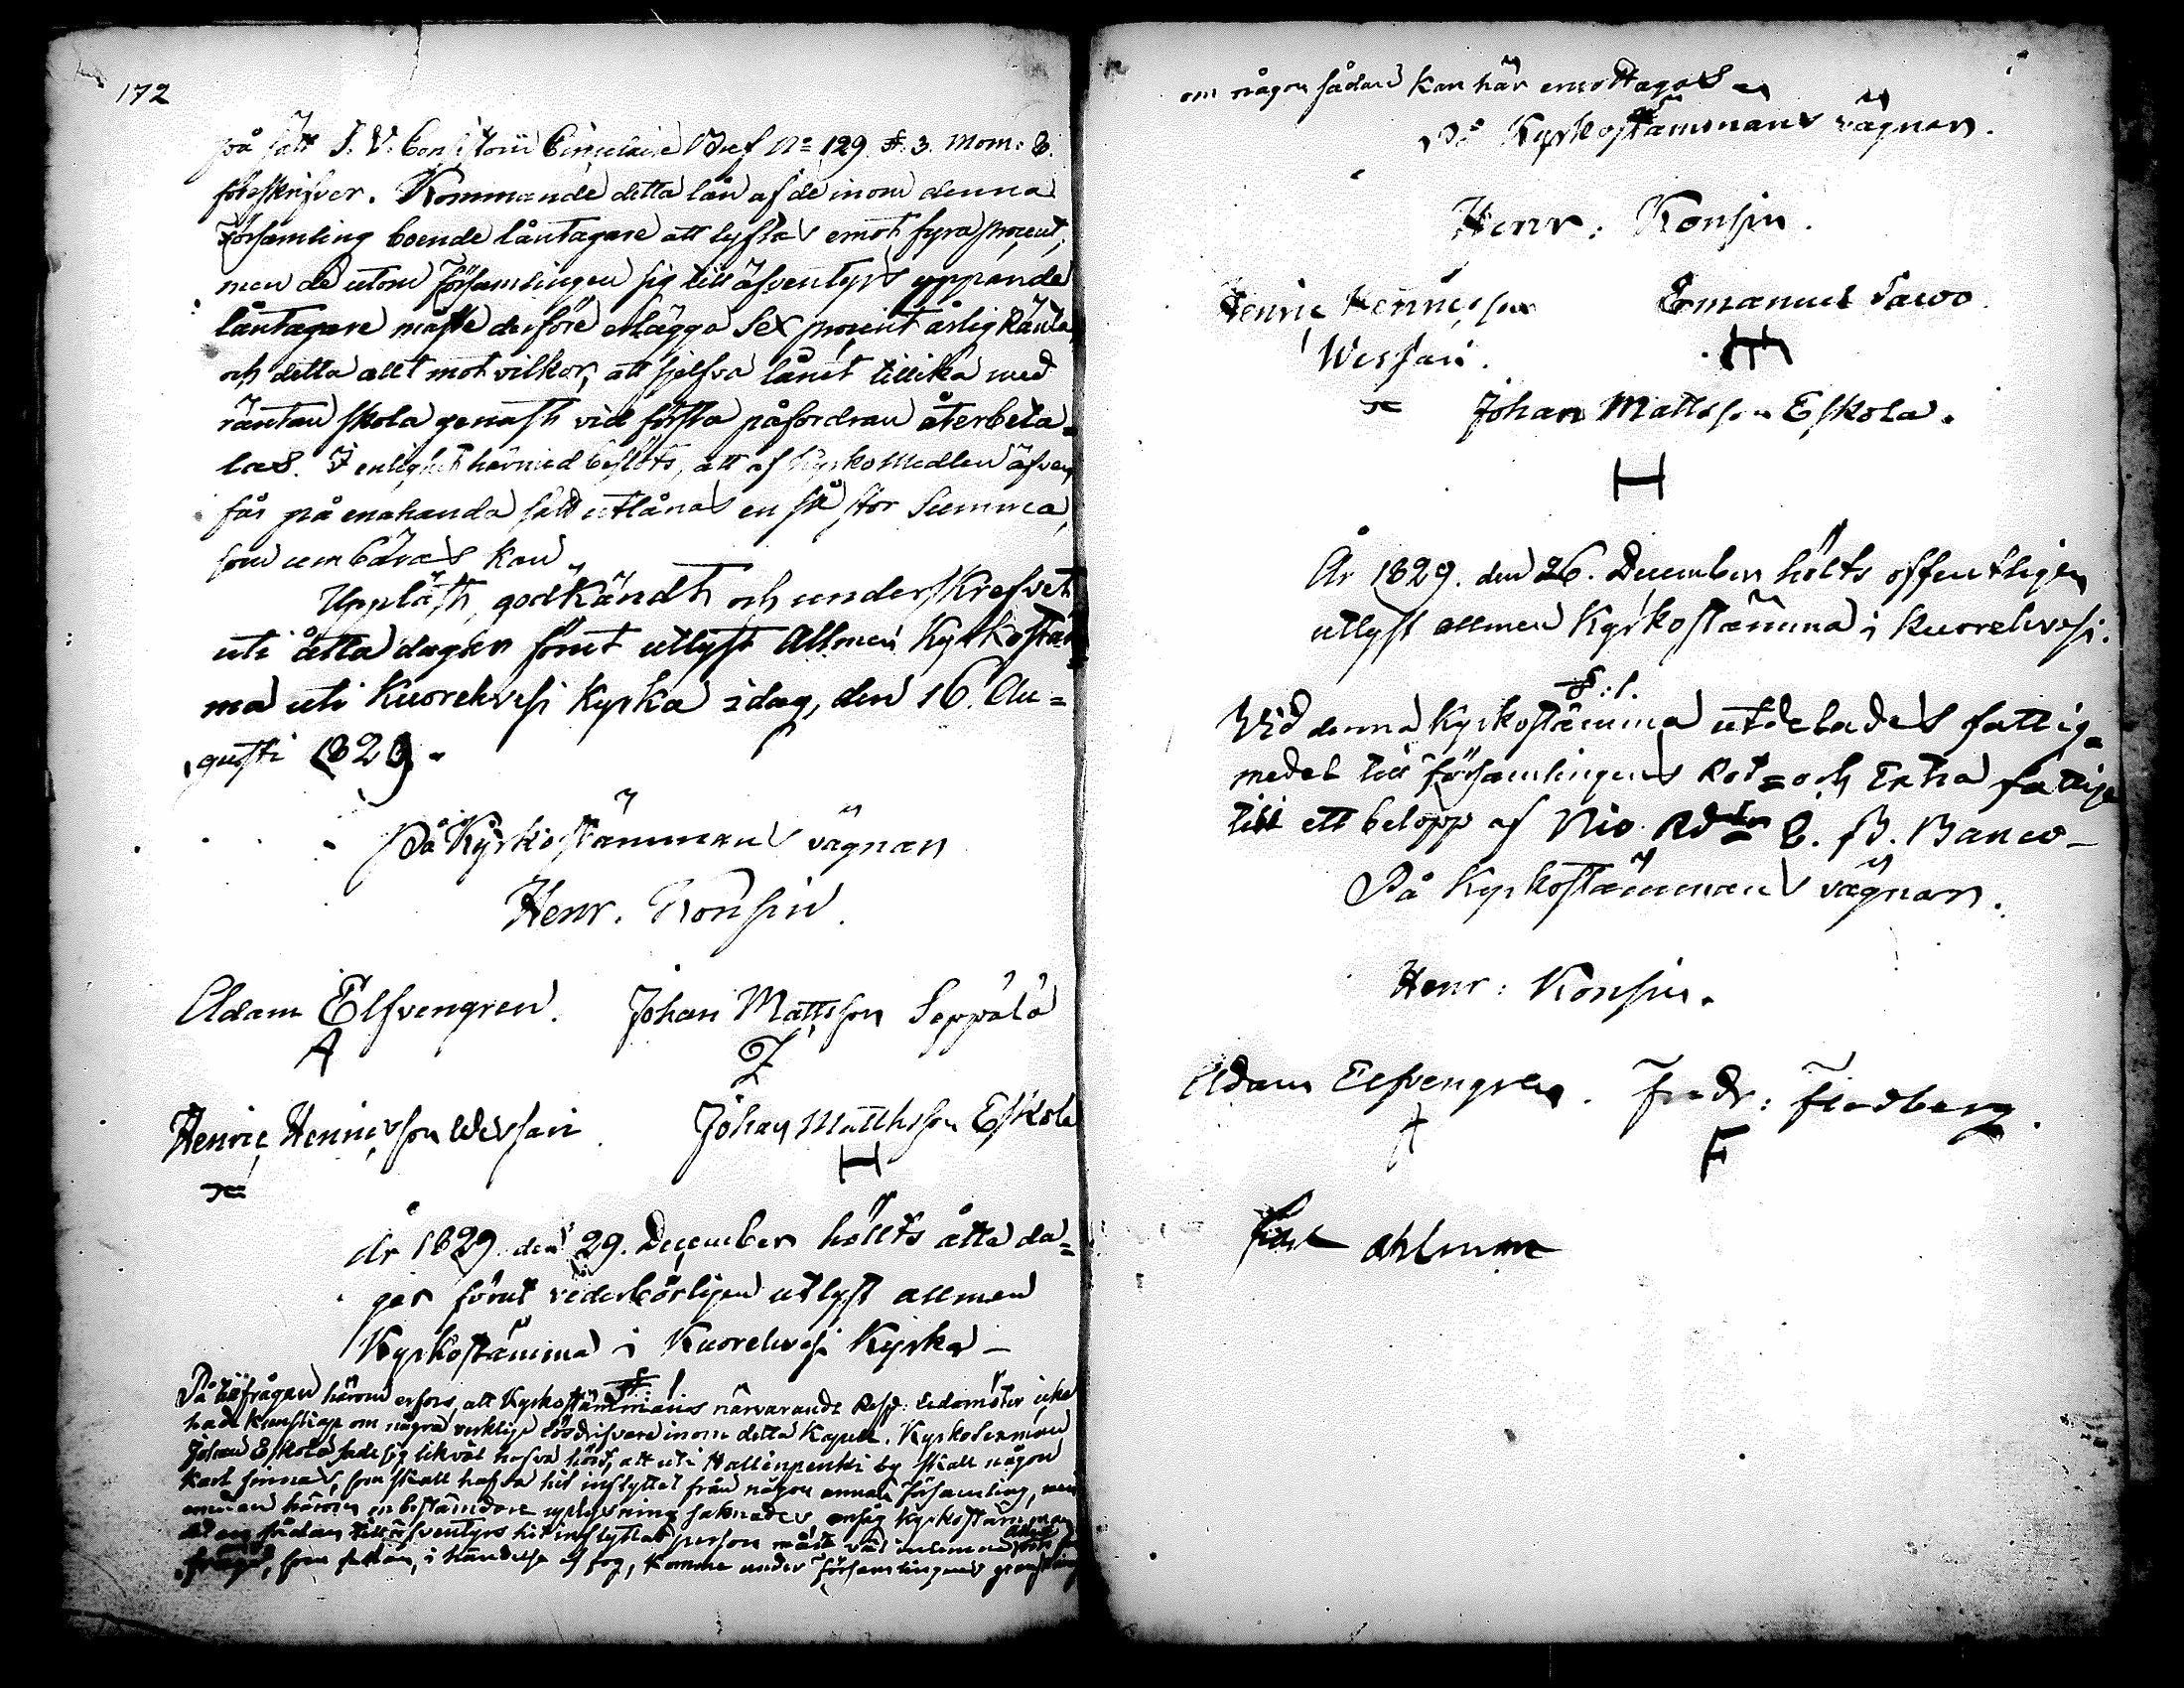 172
på sätt J. V. Consistorii Circulaire Bref No 129. §. 3. Mom: 8.
föreskrifver. Kommande detta lån af de inom denna
Församling boende låntagare att lyftas emot fyra procent;
men de utom Församlingen sig till äfventyrs yppande
låntagare måste derföre erlägga Sex procent årlig Ränta,
och detta allt mot vilkor, att sjelfva lånet tillika med
räntan skola genast vid första påfordran återbeta=
las. I enlighet härmed beslöts, att af Kyrko Medlen äfven
får på enahanda sätt utlånas en så stor Summa,
som umbäras kan.
Uppläst, godkändt och underskrefvet
uti åtta dagar förut utlyst Allmän Kyrkostäm
ma uti Kuorehvesi Kyrka idag, den 16. Au=
gusti 1829.
På Kyrkostämmans vägnar
Henr. Konsin.
Adam Elfvengren. Johan Mattsson Seppälä
A
Henric Henricsson Wessari Johan Matthsson Eskola
H
År 1829. den 29. December höllts åtta da=
gar förut vederbörligen utlyst allmen
Kyrkostämma i Kuorehvesi Kyrka –
§: 1
På tillfrågan härom erfors, att Kyrkostämmans närvarande Resp: Ledamöter icke
hade kunskap om några verklige lösdrifvare inom detta Kapell. Kyrkolexman
Johan Eskola sade sig likväl hafva hört, att uti Hallinpenki by skall någon
Karl finnas, som skall hafva hit inflyttat från någon annan Församling, men
emedan härom en bestämdare uplysning saknades, ansåg Kyrkostämman
at en sådan till äfventyrs hit inflyttad person måste
som sedan, i händelse af fog, komme under Församlingens granskning
om någon sådan kan här emottagas
På Kyrkostämmans vägnar.
Henr: Konsin.
Henric Henricsson Emanuel Sawo
Wessari.
Johan Mattsson Eskola.
H
År 1829. den 26. December hölts offentligen
utlyst allmen Kyrkostämma i Kuorehvesi.
§: 1.
Vid denna Kyrkostämma utdelades fattig=
medel till Församlingens Rot= och Extra fattige
till ett belopp af Nio Rdr 8. ß. Banco –
På Kyrkostämmans vägnar.
Henr: Konsin.
Adam Elfvengren. Fredr: Flodberg.
A F
ahlman